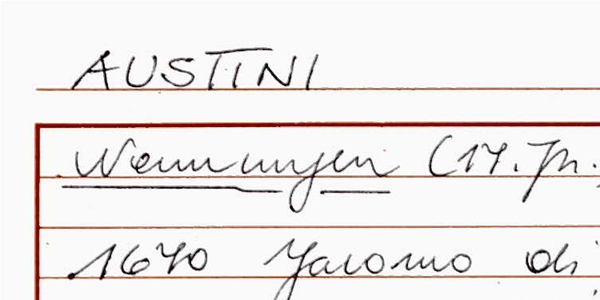 AUSTINI
Nennungen (17. Jh.
1670 Jacomo di